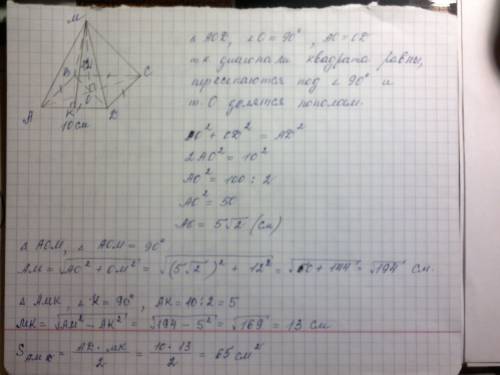 M
12
B
C
O
A
K
D
10 см
△ AOD, ∠O = 90°, AO = OD
т.к диагонали квадрата равны,
пересекаются под ∠ 90° и
т. O делятся пополам.
AO² + OD² = AD²
2AO² = 10²
AO² = 100 : 2
AO² = 50
AO = 5√2 (см)
△ AOM, ∠ AOM = 90°
AM = √AO² + OM² = √(5√2)² + 12² = √50 + 144 = √194 см.
△ AMK, ∠K = 90°, AK = 10:2 = 5
MK = √AM² - AK² = √194 - 5² = √169 = 13 см
S AMD = AD · MK / 2 = 10 · 13 / 2 = 65 см²